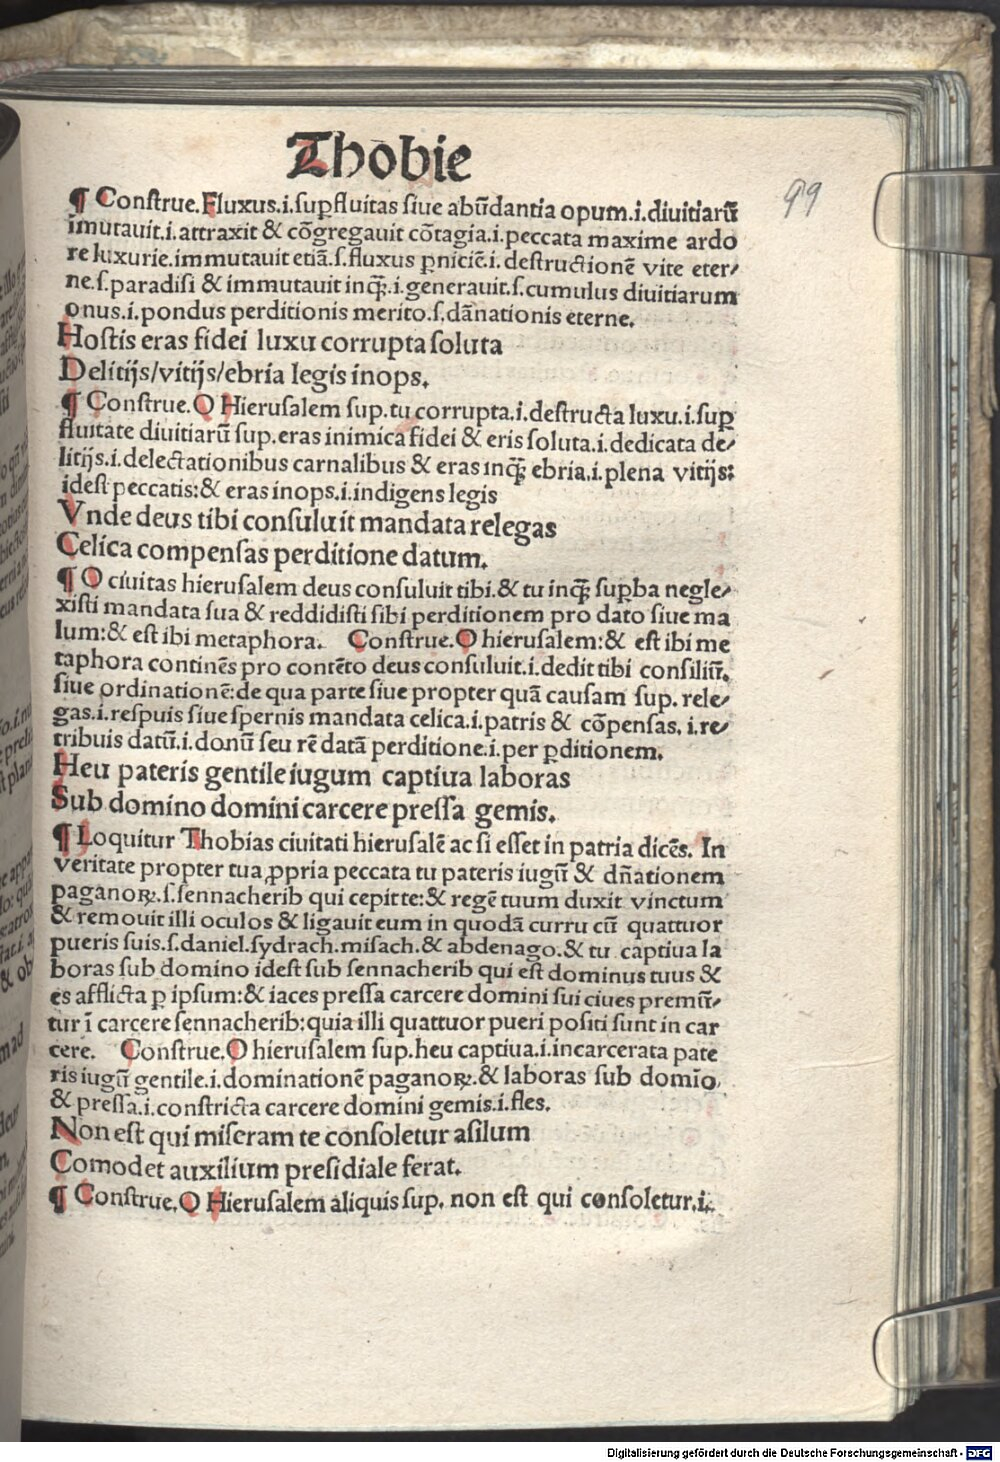 Thobie
99
¶ Construe. Fluxus.i.suꝑfluitas siue abūdantia opum.i.diuitiarū
imutauit.i.attraxit & cōgregauit cōtagia.i.peccata maxime ardo
re luxurie.immutauit etiā.s.fluxus ꝑniciē.i.destructionē vite eter⸗
ne.s.paradisi & immutauit inqꝫ̄.i.generauit.s.cumulus diuitiarum
onus.i.pondus perditionis merito.s.dānationis eterne.
Hostis eras fidei luxu corrupta soluta
Delitijs/vitijs/ebria legis inops.
¶ Construe. O Hierusalem sup.tu corrupta.i.destructa luxu.i.suꝑ
fluitate diuitiarū sup.eras inimica fidei & eris soluta.i.dedicata de⸗
litijs.i.delectationibus carnalibus & eras inqꝫ̄ ebria.i.plena vitijs:
idest peccatis:& eras inops.i.indigens legis
Vnde deus tibi consuluit mandata relegas
Celica compensas perditione datum.
¶ O ciuitas hierusalem deus consuluit tibi.& tu inqꝫ̄ suꝑba negle⸗
xisti mandata sua & reddidisti sibi perditionem pro dato siue ma
lum:& est ibi metaphora. Construe. O hierusalem:& est ibi me
taphora continēs pro contēto deus consuluit.i.dedit tibi consiliū.
siue ordinationē:de qua parte siue propter quā causam sup. rele⸗
gas.i.respuis siue spernis mandata celica.i.patris & cōpensas. i.re⸗
tribuis datū.i.donū seu rē datā perditione.i.per ꝑditionem.
Heu pateris gentile iugum captiua laboras
Sub domino domini carcere pressa gemis.
¶ Loquitur Thobias ciuitati hierusalē ac si esset in patria dicēs. In
veritate propter tua ꝓpria peccata tu pateris iugū & dn̄ationem
paganoꝝ.s.sennacherib qui cepit te:& regē tuum duxit vinctum
& remouit illi oculos & ligauit eum in quodā curru cū quattuor
pueris suis.s.daniel.sydrach.misach.& abdenago.& tu captiua la
boras sub domino idest sub sennacherib qui est dominus tuus &
es afflicta ꝑ ipsum:& iaces pressa carcere domini sui ciues premū⸗
tur ī carcere sennacherib:quia illi quattuor pueri positi sunt in car
cere. Construe. O hierusalem sup.heu captiua.i.incarcerata pate
ris iugū gentile.i.dominationē paganoꝝ.& laboras sub domīo
& pressa.i.constricta carcere domini gemis.i.fles.
Non est qui miseram te consoletur asilum
Comodet auxilium presidiale ferat.
¶ Construe. O Hierusalem aliquis sup. non est qui consoletur.i.
Digitalisierung gefördert durch die Deutsche Forschungsgemeinschaft - DFG